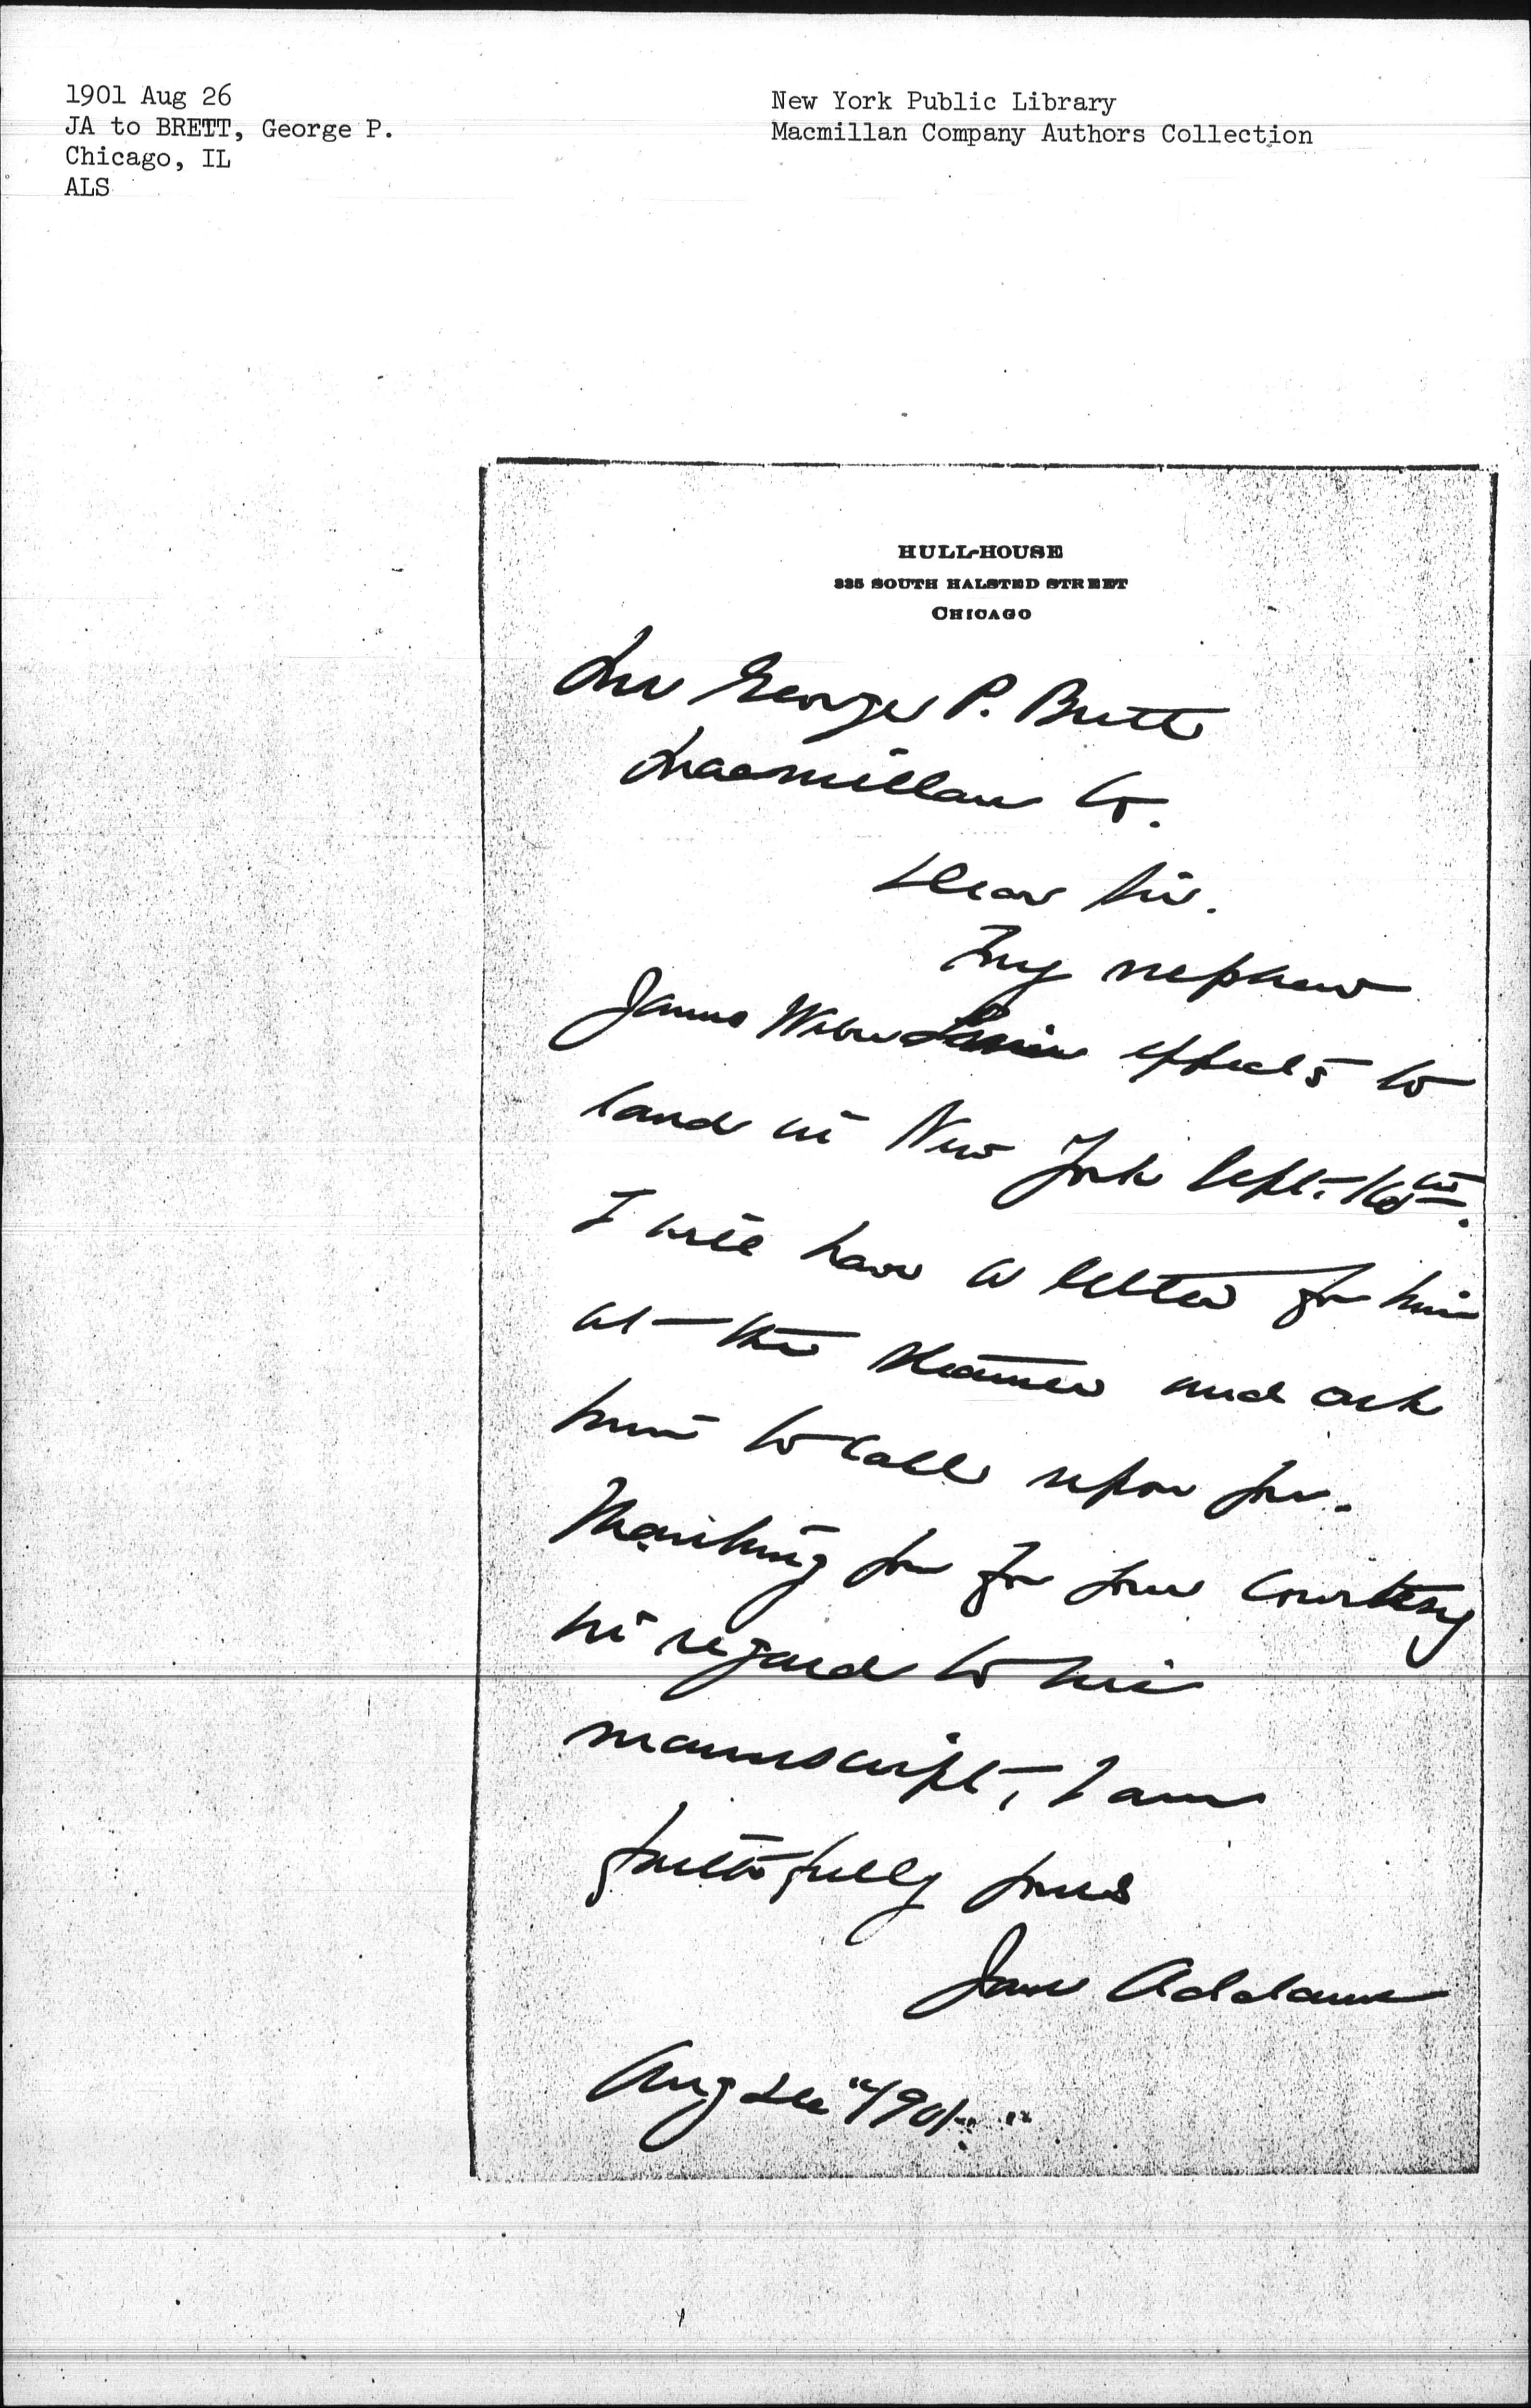 1901 Aug 26
JA to BRETT, George P.
Chicago, IL
ALS
New York Public Library
Macmillan Company Authors Collection
HULL-HOUSE
335 SOUTH HALSTED STREET
CHICAGO
Mr George P. Brett
Macmillan Co.
Dear Sir.
My nephew
James Weber Linn expects to
land in New York Sept. 10th.
I will have a letter for him
at the steamer and ask
him to call upon you.
Thanking you for your courtesy
in regard to his
manuscript, I am
faithfully yours
Jane Addams
Aug 26" 1901